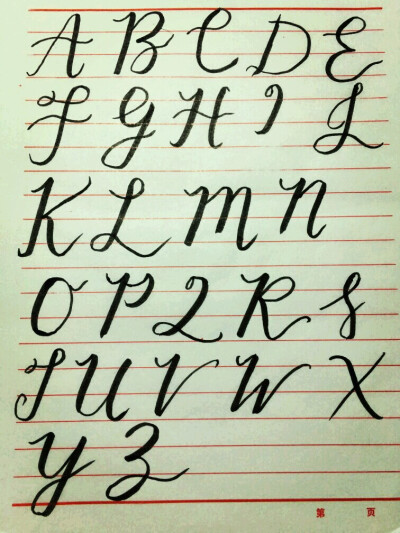 A B C D E
F G H I J
K L M N
O P Q R S
T U V W X
Y Z
第 页